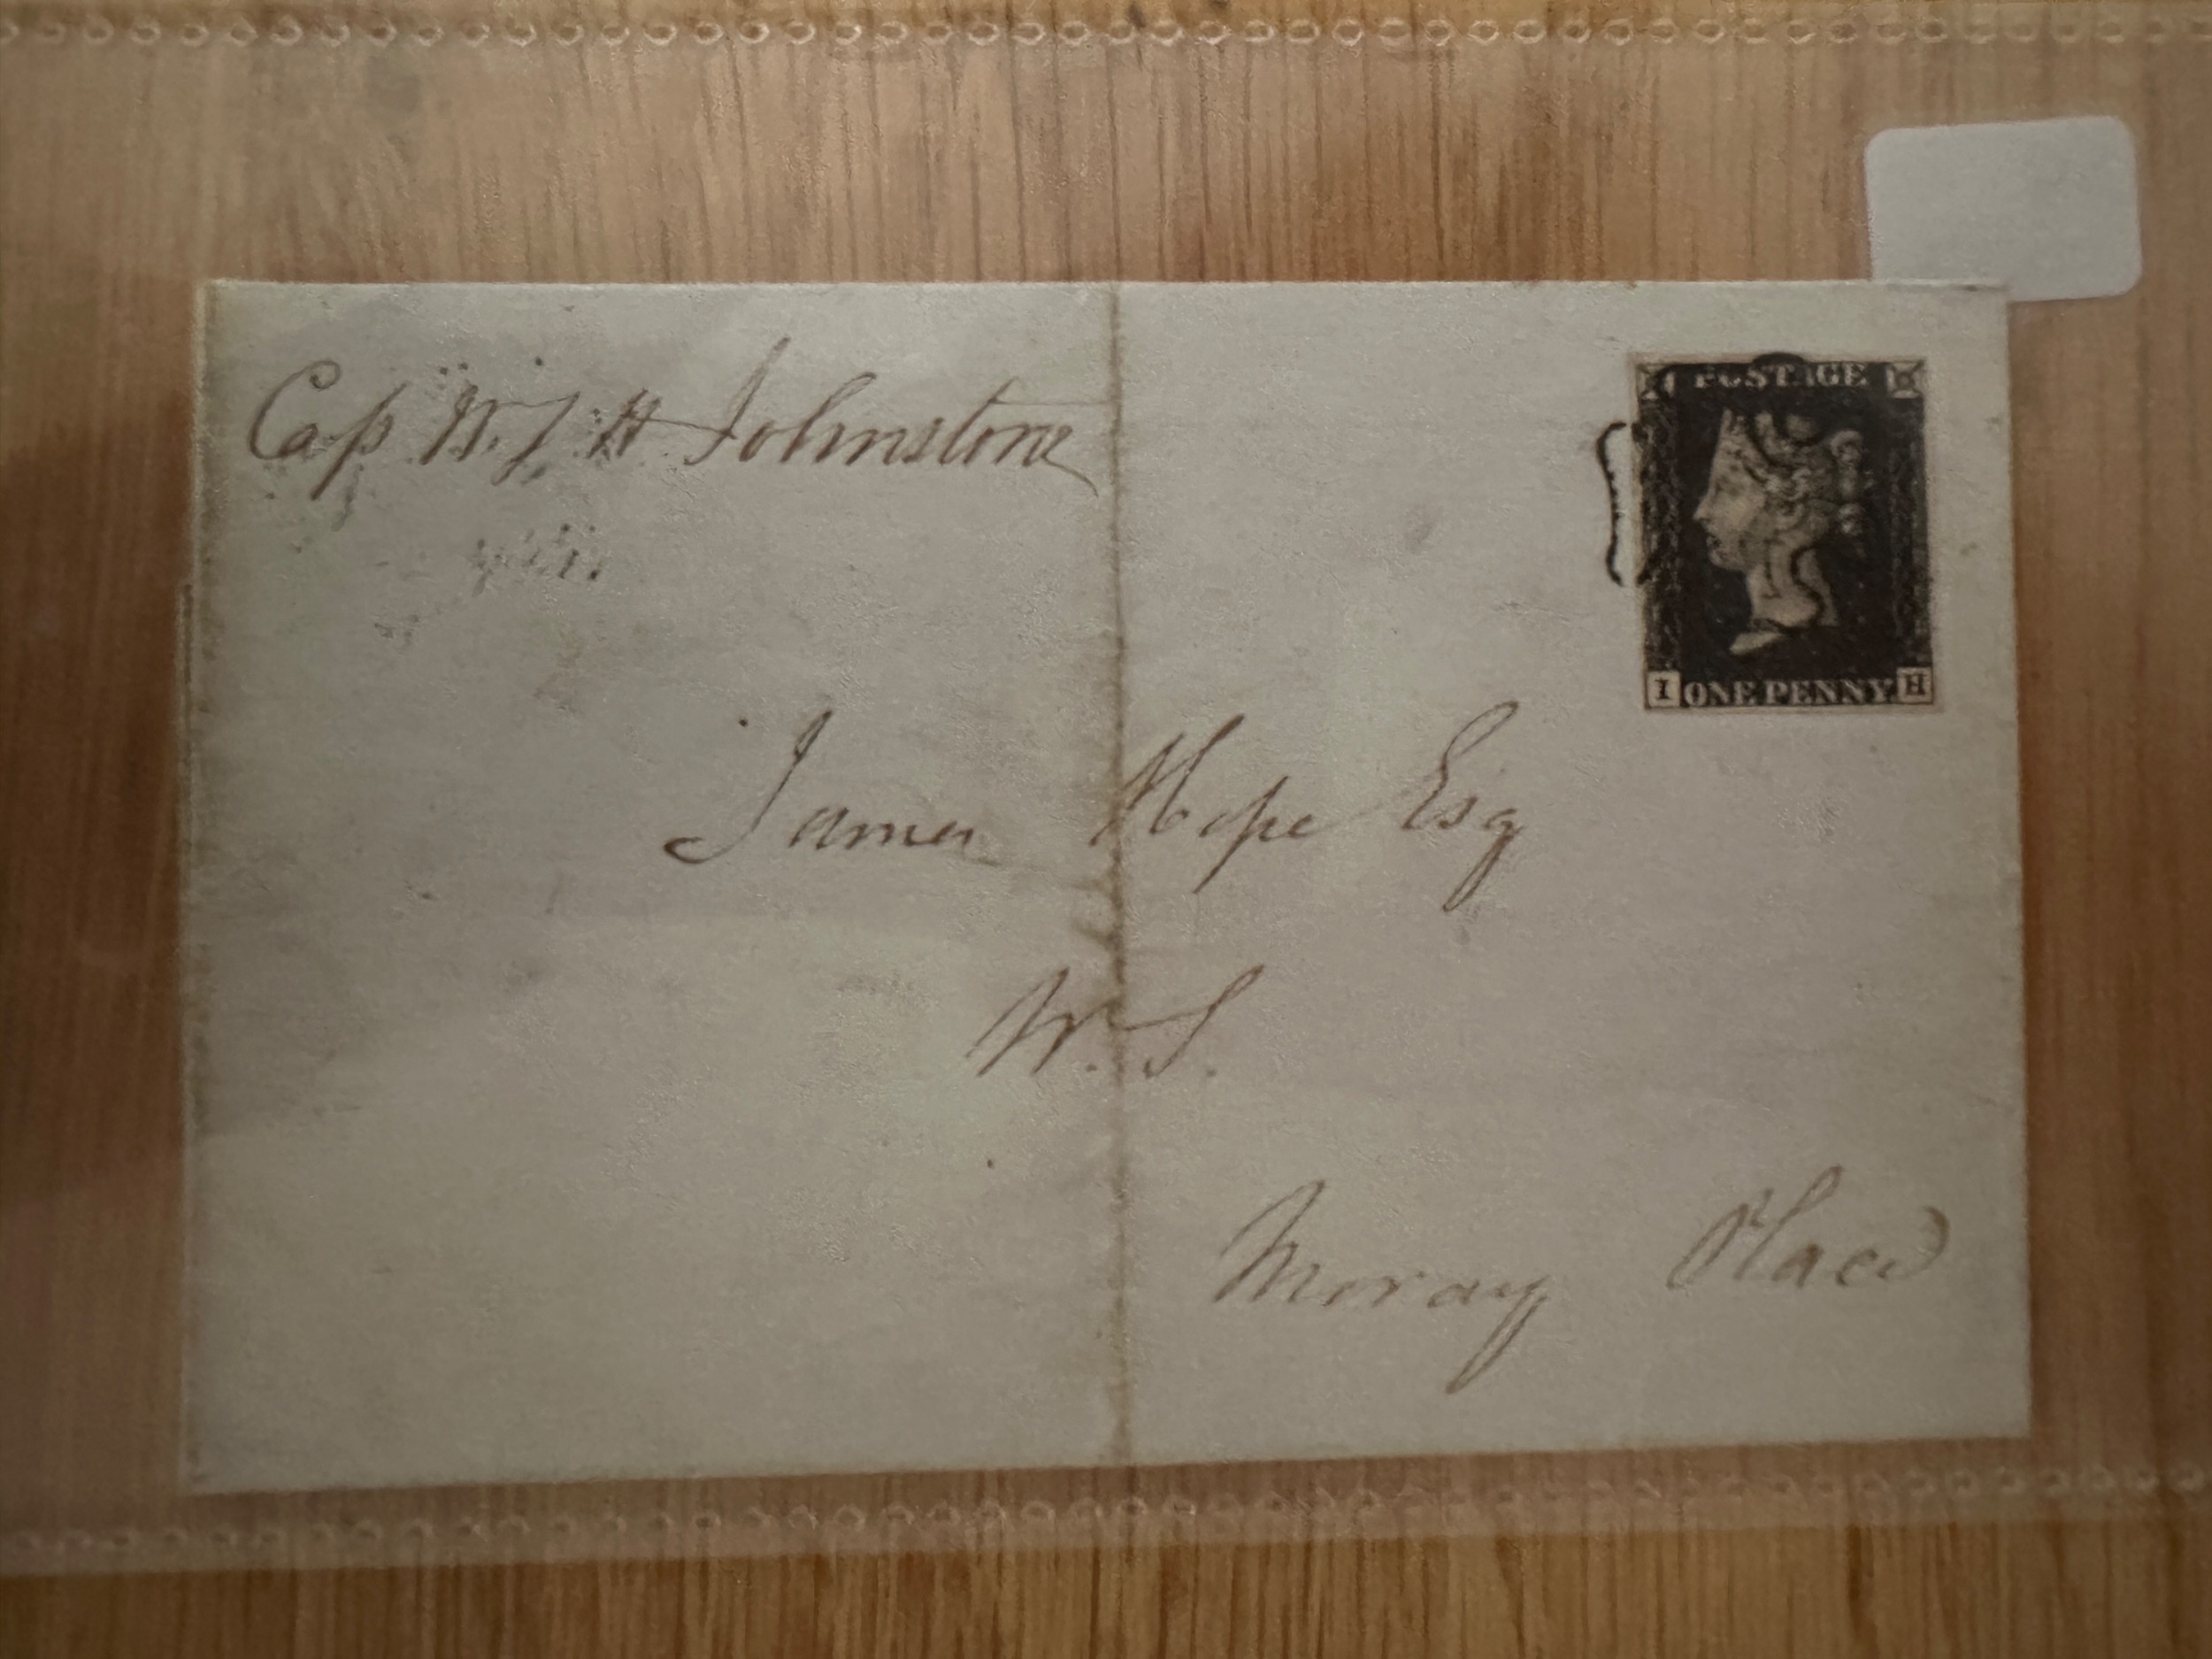 Cap W. J H Johnstone
POSTAGE
I ONE PENNY. H
James Hope Esq
W. S.
Moray Place